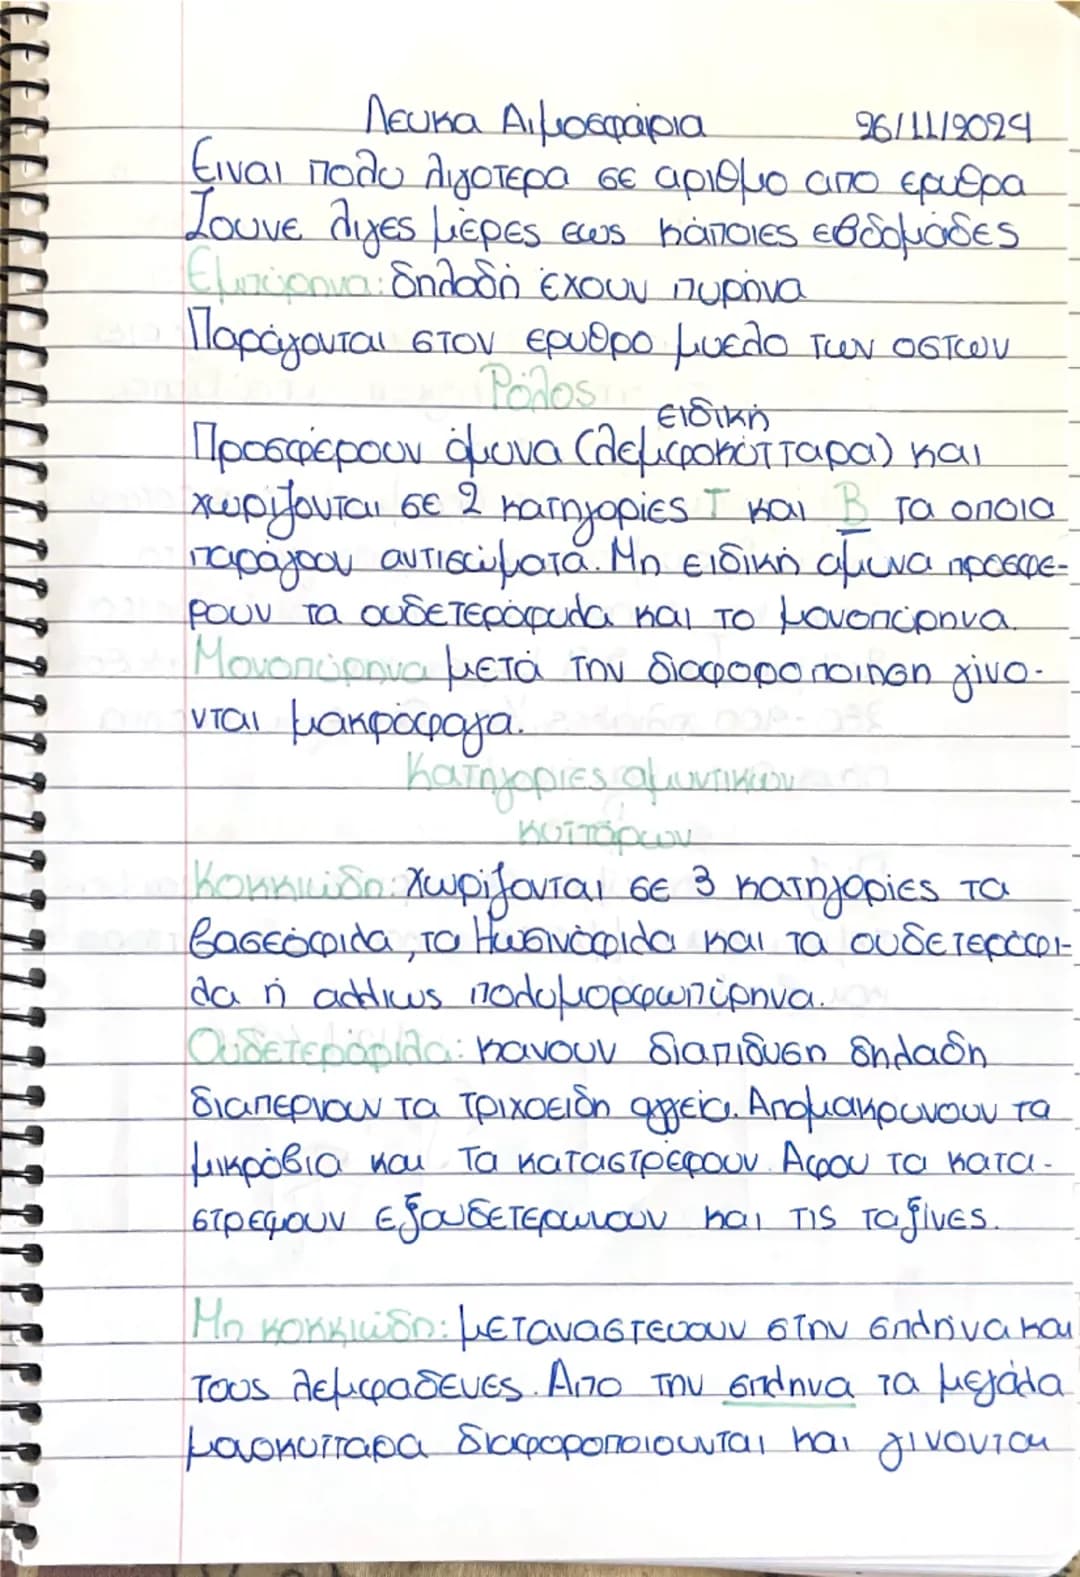 Λευκα Αιμοσφάιρια 26/11/2024
Ειναι πολυ λιγοτερα σε αριθμο απο ερυθρα
Ζουνε λιγες μέρες εως κάποιες εβδομάδες
Εμπύρηνα: δηλαδή έχουν πυρήνα
Παράγονται στον ερυθρο μυελο των οστων
Ρόλος
ειδική
Προσφέρουν άμυνα (λεμφοκύτταρα) και
χωρίζονται σε 2 κατηγορίες Τ και Β τα οποια
παράγουν αντισώματα. Μη ειδική αμυνα προσφε-
ρουν τα ουδετερόφυλα και το μονοπύρηνα.
Μονοπύρηνα μετά την διαφοροποιηση γίνο-
νται μακρόφαγα.
Κατηγορίες αμυντικων
κυττάρων
Κοκκιώδη: Χωρίζονται σε 3 κατηγορίες τα
βασεόφιλα, τα Ηωσινόφιλα και τα ουδετερόφι-
λα ή αλλιως πολυμορφωπύρηνα.
Ουδετερόφιλα: κανουν διαπιδυση δηλαδη
διαπερνουν τα τριχοειδη αγγεία. Απομακρυνουν τα
μικρόβια και τα καταστρέφουν. Αφου τα κατα-
στρεφουν εξουδετερωνουν και τις ταξίνες.
Μη κοκκιώδη: μεταναστευουν στην σπλήνα και
τους λεμφαδενες. Απο την σπληνα τα μεγάλα
μονοκυτταρα διαφοροποιουνται και γινονται